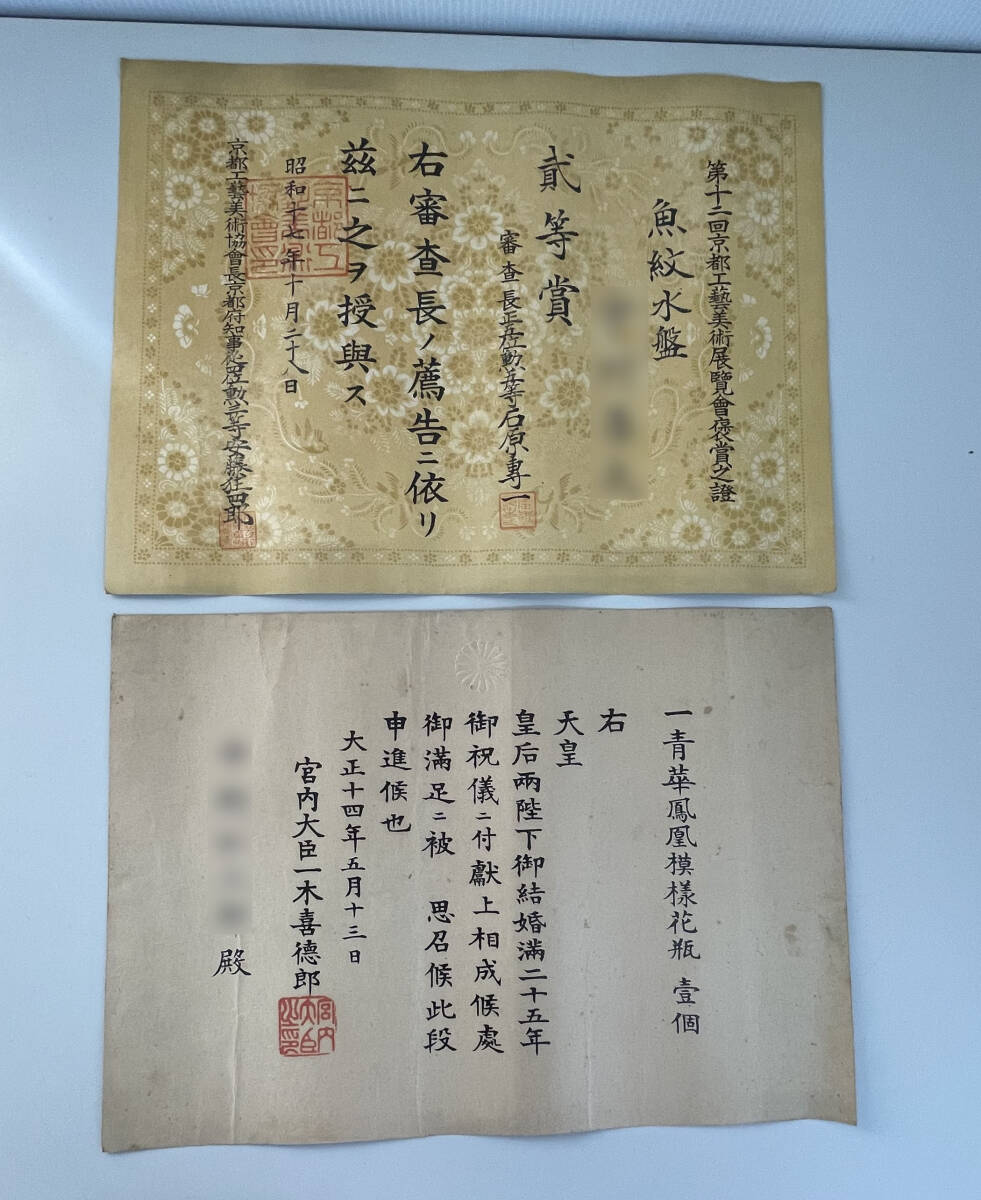 第十二回京都工藝美術展覽會褒賞之證
魚紋水盤
貳等賞
審査長正五位勲五等石原專一
右審査長ノ薦告ニ依リ
茲ニ之ヲ授與ス
昭和十七年十月二十八日
京都工藝美術協會長京都府知事從四位勲三等安藤狂四郎
一青華鳳凰模樣花瓶 壹個
右
天皇
皇后兩陛下御結婚滿二十五年
御祝儀ニ付獻上相成候處
御滿足ニ被 思召候此段
申進候也
大正十四年五月十三日
宮内大臣一木喜德郎
殿
宮内大臣之印